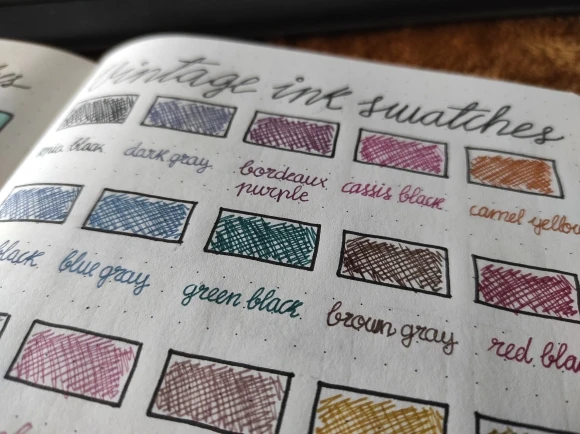 vintage ink swatches
black
dark gray
bordeaux
purple
cassis black
camel yellow
black
blue gray
green black
brown gray
red black